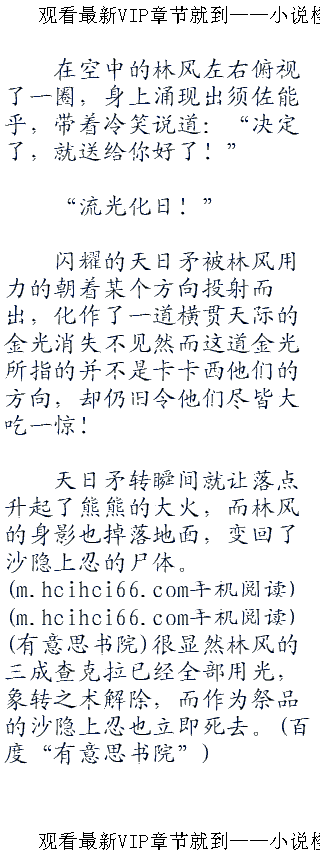 观看最新VIP章节就到——小说
在空中的林风左右俯视
了一圈，身上涌现出须佐能
乎，带着冷笑说道：“决定
了，就送给你好了！”
“流光化日！”
闪耀的天日矛被林风用
力的朝着某个方向投射而
出，化作了一道横贯天际的
金光消失不见然而这道金光
所指的并不是卡卡西他们的
方向，却仍旧令他们尽皆大
吃一惊！
天日矛转瞬间就让落点
升起了熊熊的大火，而林风
的身影也掉落地面，变回了
沙隐上忍的尸体。
(m.hcihci66.com手机阅读)
(m.hcihci66.com手机阅读)
(有意思书院)很显然林风的
三成查克拉已经全部用光，
象转之术解除，而作为祭品
的沙隐上忍也立即死去。(百
度“有意思书院”)
观看最新VIP章节就到——小说